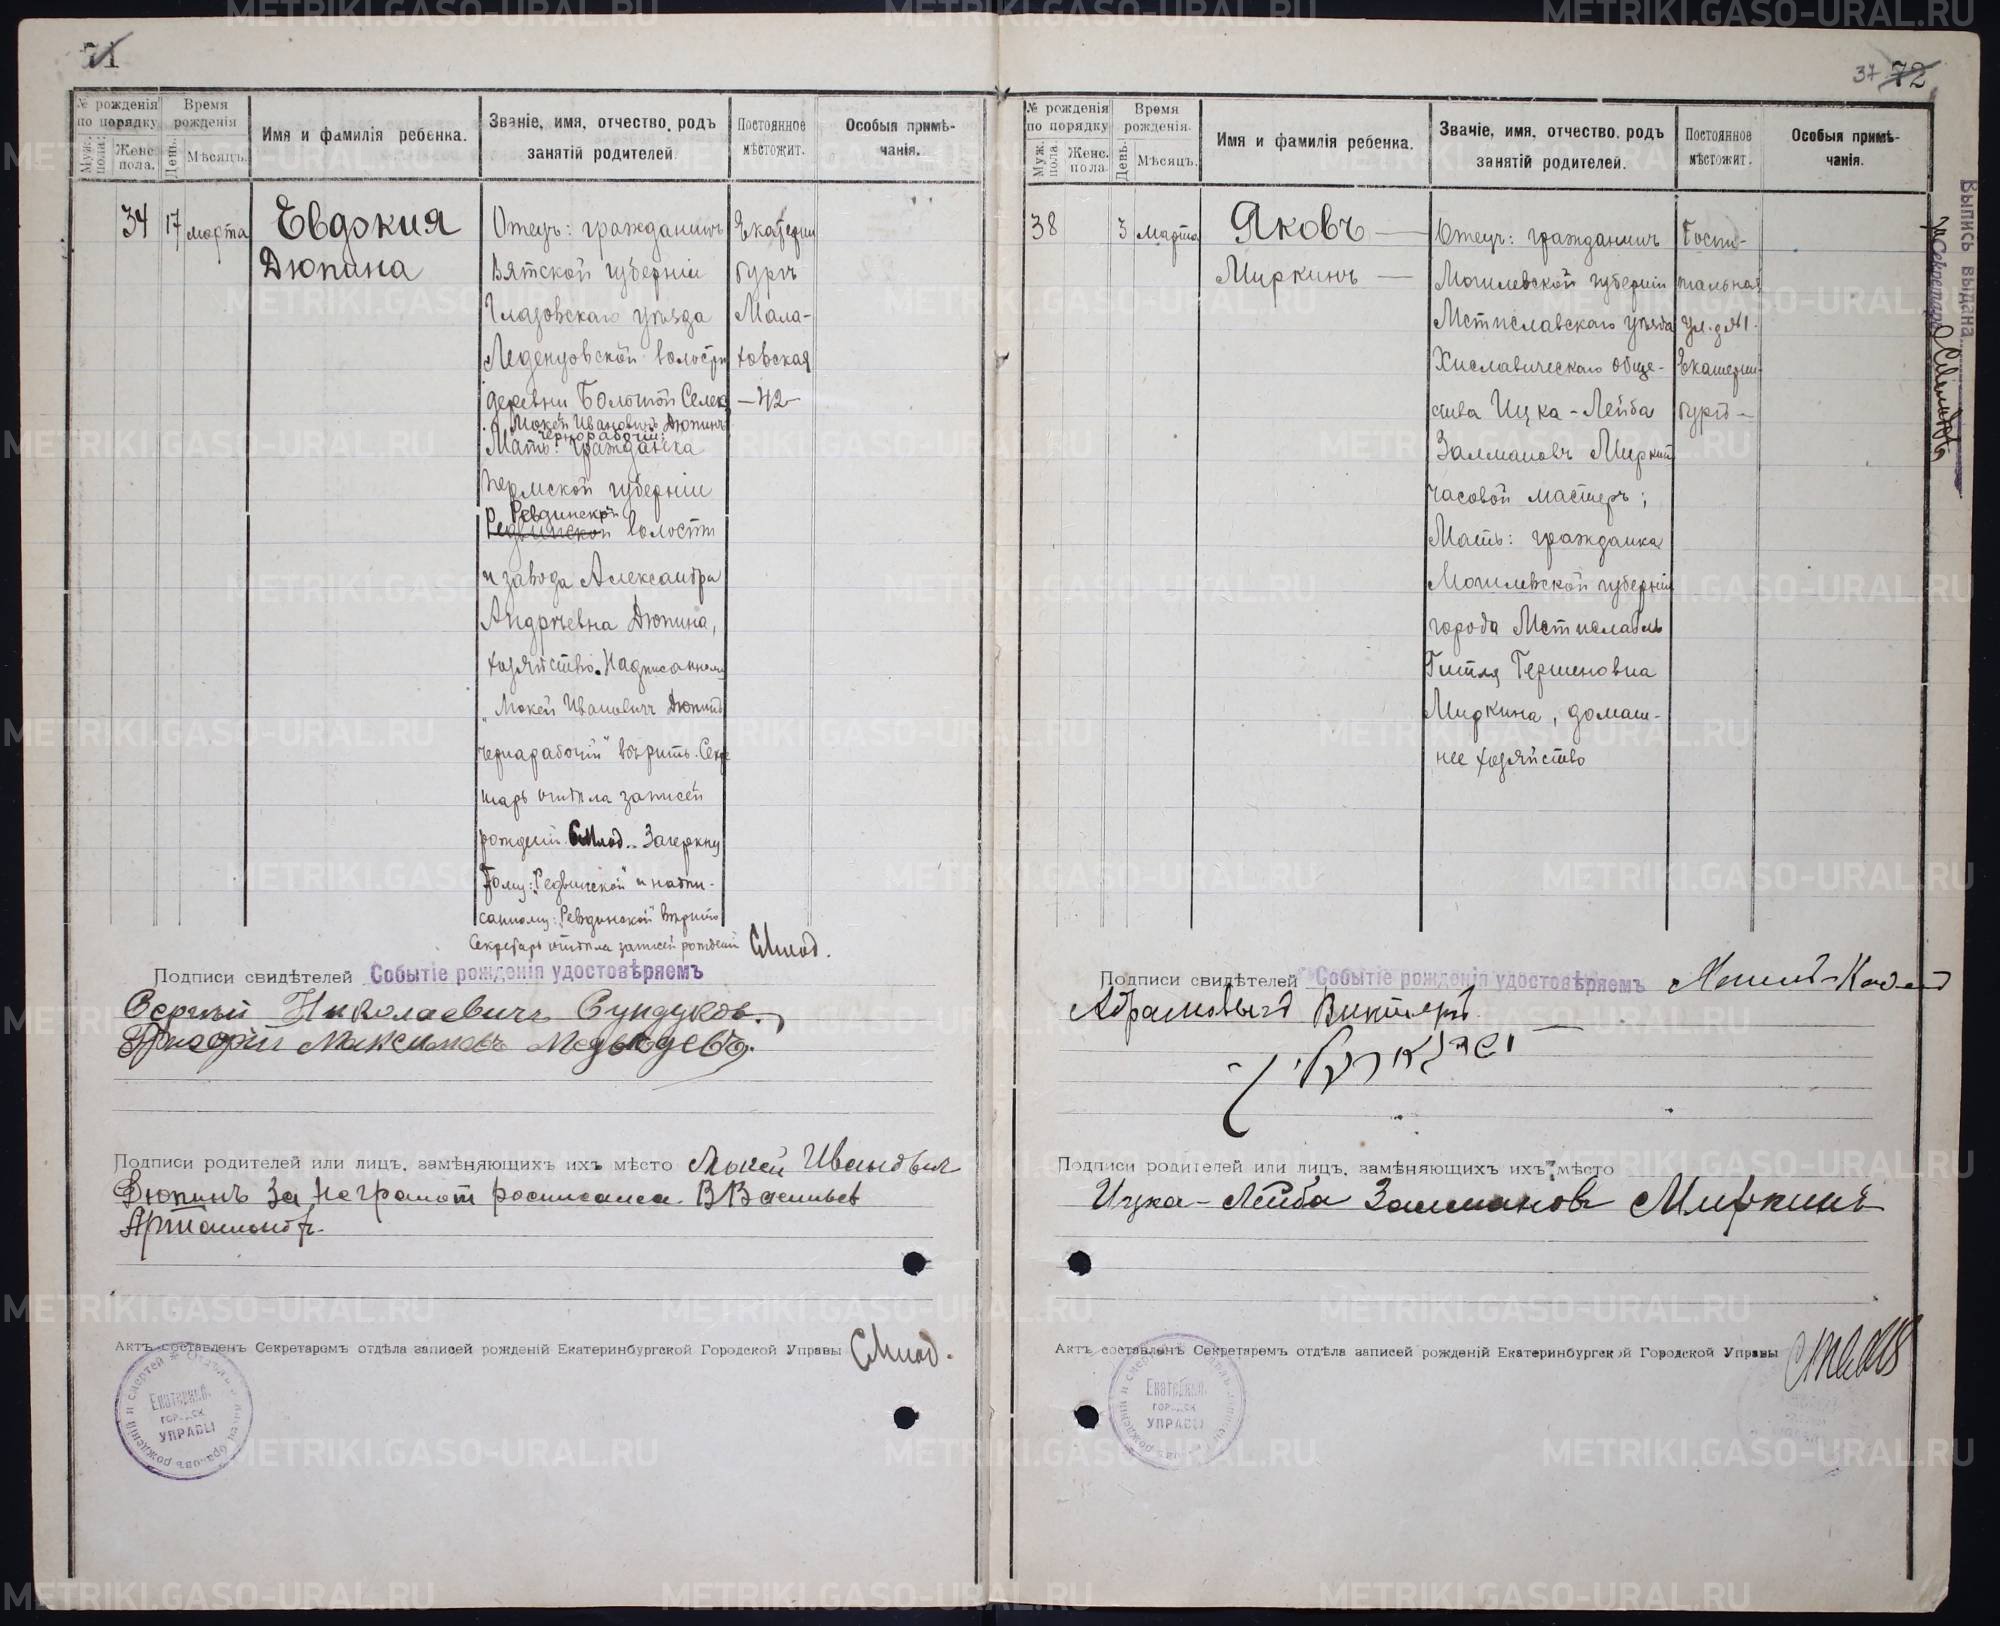 71
№ рожденія по порядку
Муж. пола.
Женс. пола.
Время рожденія
День.
Мѣсяцъ.
Имя и фамилія ребенка.
Званіе, имя, отчество, родъ
занятій родителей.
Постоянное
мѣстожит.
Особыя примѣ-
чанія.
34
17
марта
Евдокия
Дюпина
Отецъ: гражданинъ
Вятской губерніи
Глазовскаго уѣзда
волости
деревни Большой
Мокей Ивановичъ Дюпинъ
чернорабочій;
Мать: гражданка
Пермской губерніи
Ревдинской
волости
и завода Александра
Андреевна Дюпина,
хозяйство. Надписанному
„Мокей Ивановичъ Дюпинъ
чернарабочій" вѣрить. Секре
тарь отдѣла записей
рожденій СМлод. Зачеркну
тому: „Редвинской" и напи-
санному: „Ревдинской" вѣрить
Секретарь отдѣла записей рожденій СМлод.
Екатерин
бургъ
Мала-
ховская
—42—
Подписи свидѣтелей Событіе рожденія удостовѣряемъ
Сергѣй Николаевичъ Сундуков
Григорій Максимовъ Медведевъ.
Подписи родителей или лицъ, замѣняющихъ ихъ мѣсто Мокей Иванович
Дюпинъ За неграмот росписался
Актъ составленъ Секретаремъ отдѣла записей рожденій Екатеринбургской Городской Управы СМлод.
Екатеринб.
ГОРОДСК
УПРАВЫ
37 72
№ рожденія по порядку
Муж. пола.
Женс. пола
Время рожденія.
День.
Мѣсяцъ.
Имя и фамилія ребенка.
Званіе, имя, отчество, родъ
занятій родителей.
Постоянное
мѣстожит.
Особыя примѣ-
чанія.
38
3
марта
Яковъ —
Миркинъ —
Отецъ: гражданинъ
Могилевской губерніи
Мстиславскаго уѣзда
Хиславическаго обще-
ства Ицка-Лейба
Залмановъ Миркин
часовой мастеръ;
Мать: гражданка
Могилевской губерніи
города Мстиславль
Гитля Гершеновна
Миркина, домаш-
нее хозяйство
Госпи-
тальная
ул. д №1.
Екатерин-
бургъ —
Выпись выдана
Секретарь
Подписи свидѣтелей Событіе рожденія удостовѣряемъ
Абрамовичъ
Подписи родителей или лицъ, замѣняющихъ ихъ мѣсто
Ицка-Лейба Залманов Миркинъ
Актъ составленъ Секретаремъ отдѣла записей рожденій Екатеринбургской Городской Управы
Екатеринб.
ГОРОДСК
УПРАВЫ
METRIKI.GASO-URAL.RU